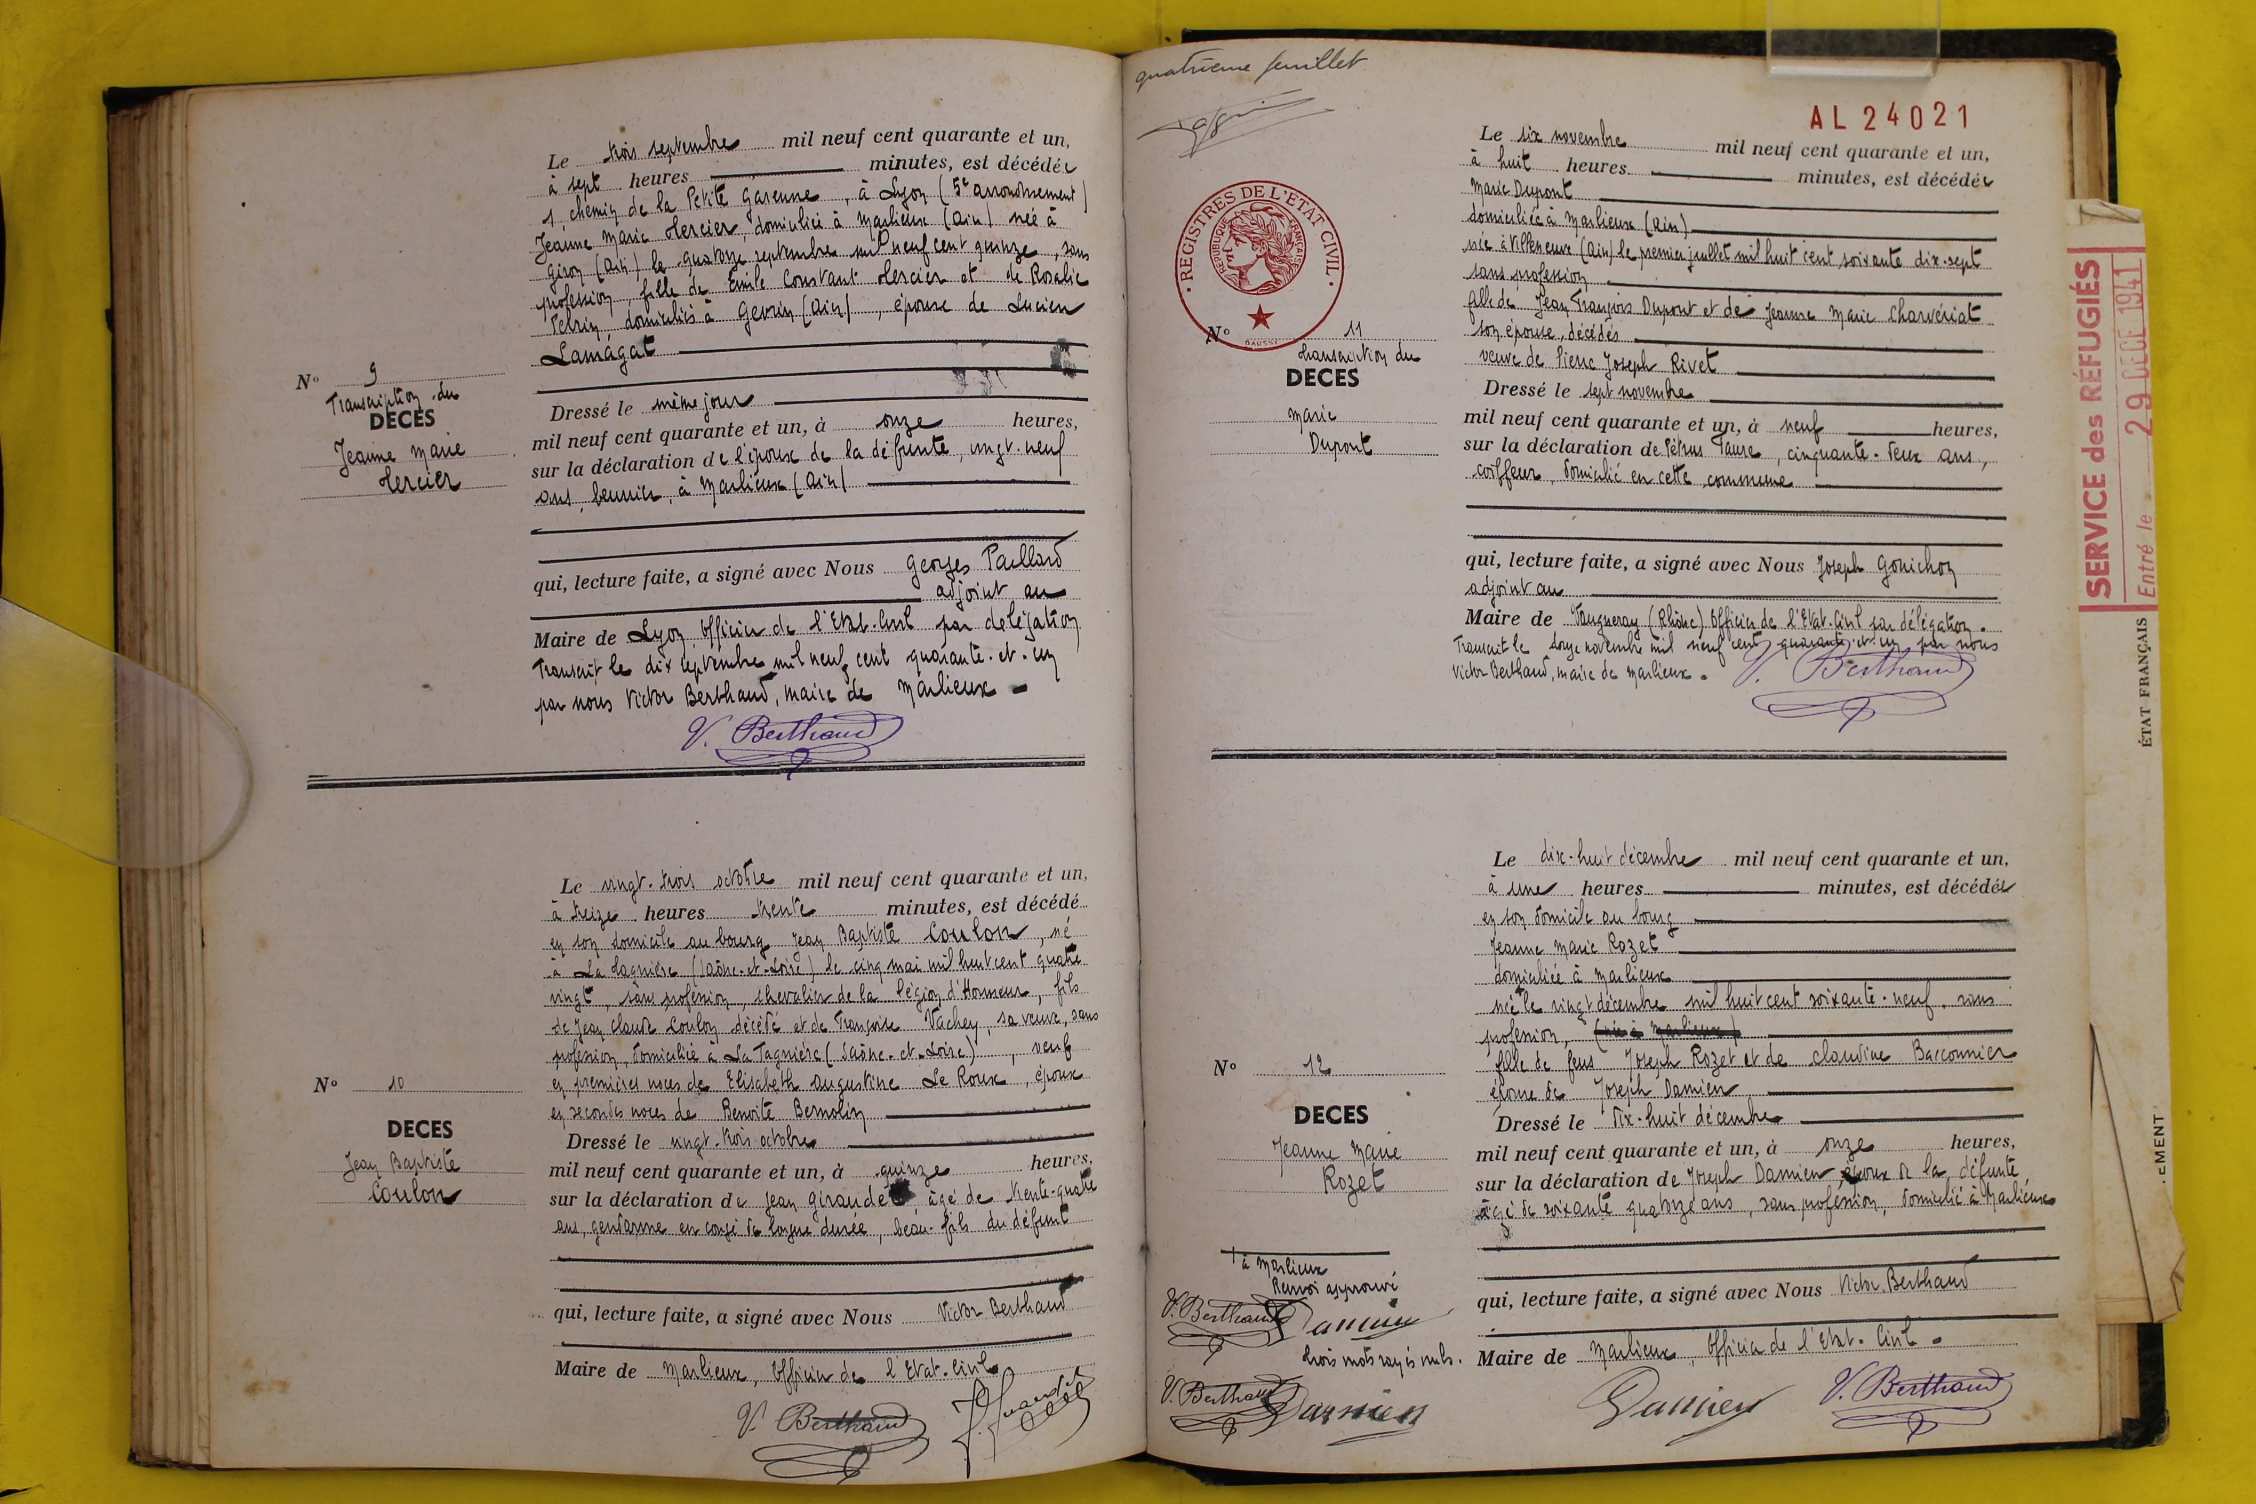 Le trois septembre mil neuf cent quarante et un,
à sept heures minutes, est décédée
1 chemin de la Petite Garenne, à Lyon (5e arrondissement)
Jeanne Marie Mercier, domiciliée à Marlieux (Ain) née à
Giron (Ain) le quatorze septembre mil neuf cent quinze, sans
profession, fille de Emile Constant Mercier et de Rosalie
domiciliés à (Ain), épouse de Lucien
Lamagat
N° 9
Transcription du
DECES
Jeanne Marie
Mercier
Dressé le même jour
mil neuf cent quarante et un, à onze heures,
sur la déclaration de l'époux de la défunte, vingt-neuf
ans, à Marlieux (Ain)
qui, lecture faite, a signé avec Nous Georges Paillard
adjoint au
Maire de Lyon Officier de l'Etat-Civil par délégation
Transcrit le dix septembre mil neuf cent quarante-et-un
par nous Victor Berthaud, maire de Marlieux.
V. Berthaud
Le vingt-trois octobre mil neuf cent quarante et un,
à treize heures trente minutes, est décédé
en son domicile au bourg Jean Baptiste Coulon, né
à La Tagnière (Saône-et-Loire) le cinq mai mil huit cent quatre
vingt, sans profession, chevalier de la Légion d'Honneur, fils
de Jean Claude Coulon décédé et de Françoise Vachey, sa veuve, sans
profession, domiciliée à La Tagnière (Saône-et-Loire), veuf
en premières noces de Elisabeth Augustine Le Roux, époux
en secondes noces de Benoîte Bernolin
N° 10
DECES
Jean Baptiste
Coulon
Dressé le vingt-trois octobre
mil neuf cent quarante et un, à quinze heures,
sur la déclaration de Jean âgé de trente-quatre
ans, gendarme en congé de longue durée, beau-fils du défunt
qui, lecture faite, a signé avec Nous Victor Berthaud
Maire de Marlieux, Officier de l'Etat-Civil
V. Berthaud
quatrième feuillet
AL 24021
REGISTRES DE L'ETAT CIVIL
REPUBLIQUE FRANÇAISE
Le six novembre mil neuf cent quarante et un,
à huit heures minutes, est décédée
Marie Dupont
domiciliée à Marlieux (Ain)
née à Villeneuve (Ain) le premier juillet mil huit cent soixante dix-sept
sans profession
fille de Jean François Dupont et de Jeanne Marie Charvériat
son épouse, décédés
veuve de Pierre Joseph Rivet
N° 11
Transcription du
DECES
Marie
Dupont
Dressé le sept novembre
mil neuf cent quarante et un, à neuf heures,
sur la déclaration de Pétrus Faure, cinquante-deux ans,
coiffeur, domicilié en cette commune
qui, lecture faite, a signé avec Nous Joseph Gonichon
adjoint au
Maire de Vaugneray (Rhône) Officier de l'Etat-Civil par délégation.
Transcrit le douze novembre mil neuf cent quarante-et-un par nous
Victor Berthaud, maire de Marlieux.
V. Berthaud
Le dix-huit décembre mil neuf cent quarante et un,
à une heures minutes, est décédée
en son domicile au bourg
Jeanne Marie Rozet
domiciliée à Marlieux
née le vingt décembre mil huit cent soixante-neuf, sans
profession, (née à Marlieux)
fille de feus Joseph Rozet et de Claudine Baconnier
épouse de Joseph Damien
N° 12
DECES
Jeanne Marie
Rozet
Dressé le dix-huit décembre
mil neuf cent quarante et un, à onze heures,
sur la déclaration de Joseph Damien époux de la défunte
âgé de soixante quatorze ans, sans profession, domicilié à Marlieux
à Marlieux
Renvoi approuvé
V. Berthaud Damien
trois mots rayés nuls.
V. Berthaud Damien
qui, lecture faite, a signé avec Nous Victor Berthaud
Maire de Marlieux, Officier de l'Etat-Civil.
Damien V. Berthaud
SERVICE des RÉFUGIÉS
Entré le 29 DECE 1941
ÉTAT FRANÇAIS
EMENT